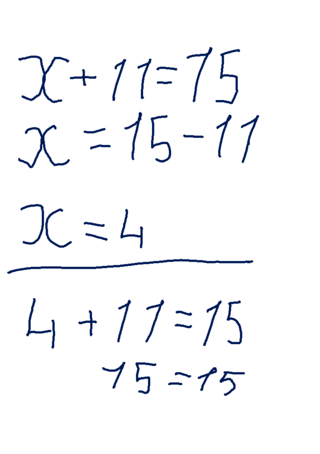 x+11=15
x=15-11
x=4
4+11=15
15=15